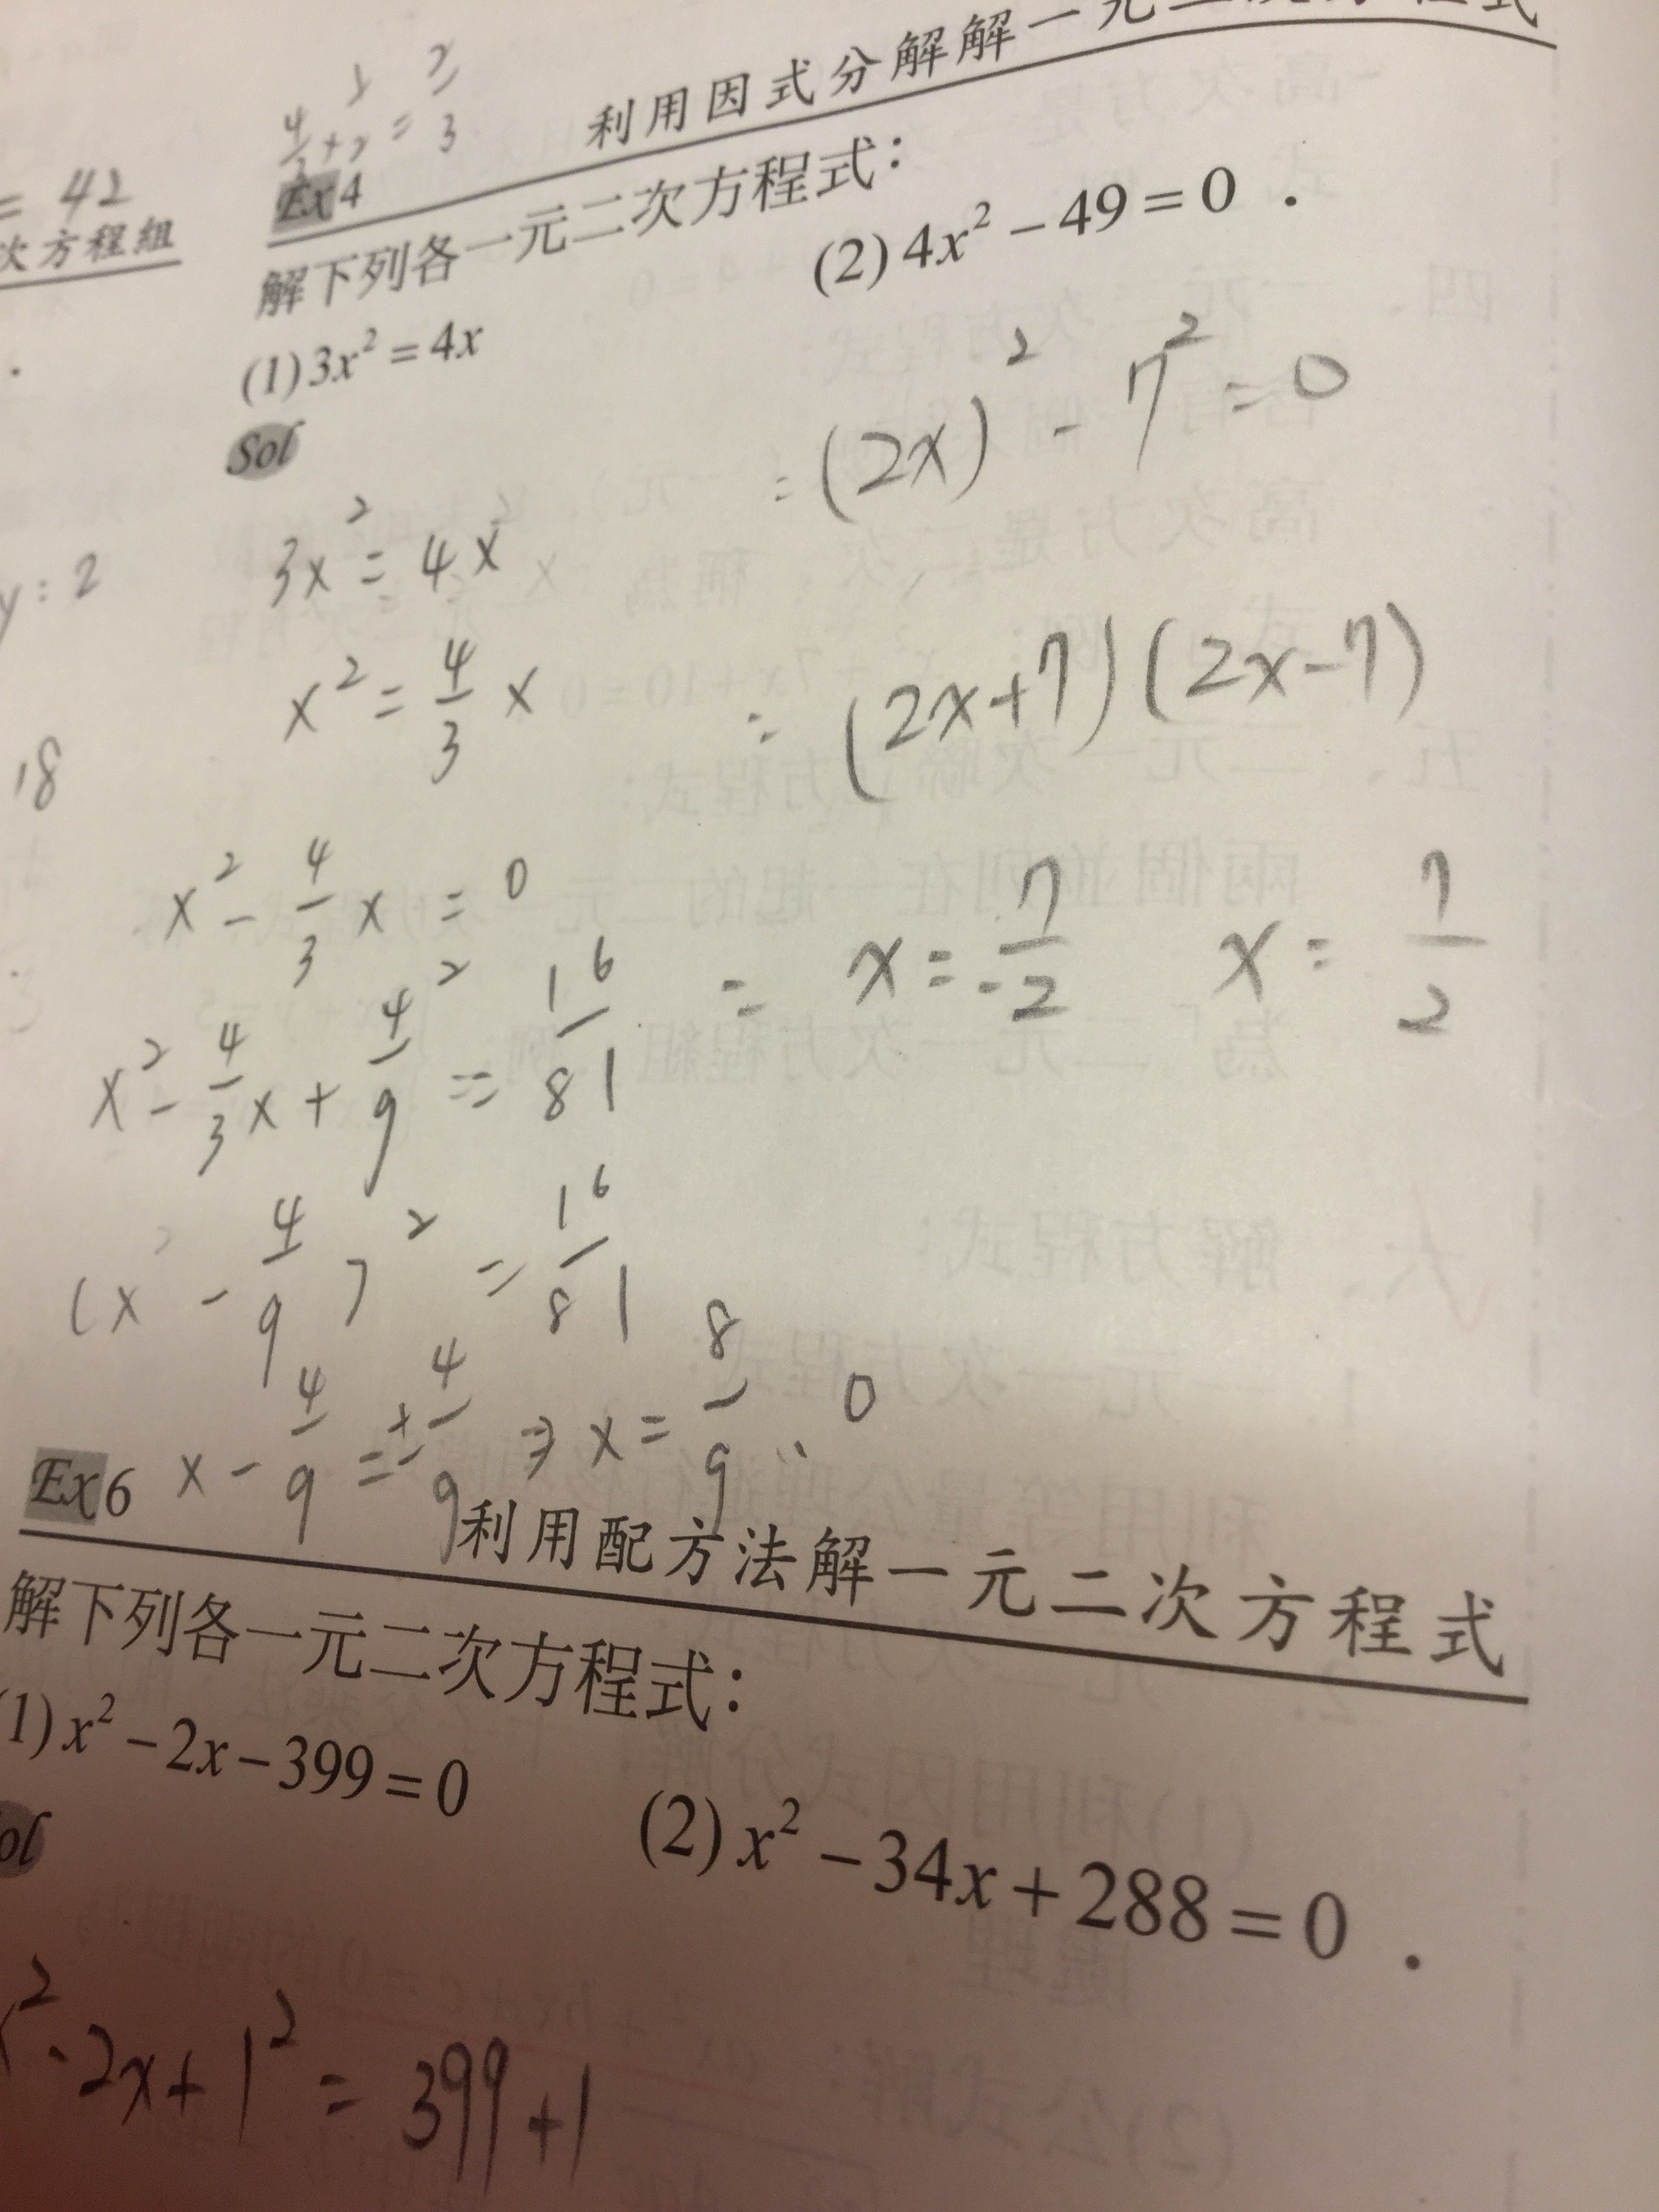 = 42
次方程組
y : 2
18
4/3 + 2 = 2/3
Ex4
利用因式分解解一元二次方程式
解下列各一元二次方程式：
(1) 3x² = 4x
(2) 4x² − 49 = 0 .
Sol
3x² = 4x
x² = 4/3 x
x² - 4/3 x = 0
x² - 4/3 x + 4/9² = 16/81
(x - 4/9)² = 16/81
x - 4/9 = ± 4/9 ⇒ x = 8/9 , 0
= (2x)² - 7² = 0
= (2x+7)(2x-7)
= x = 7/-2 x = 7/2
Ex6
利用配方法解一元二次方程式
解下列各一元二次方程式：
(1) x² − 2x − 399 = 0
(2) x² − 34x + 288 = 0 .
x² - 2x + 1² = 399 + 1